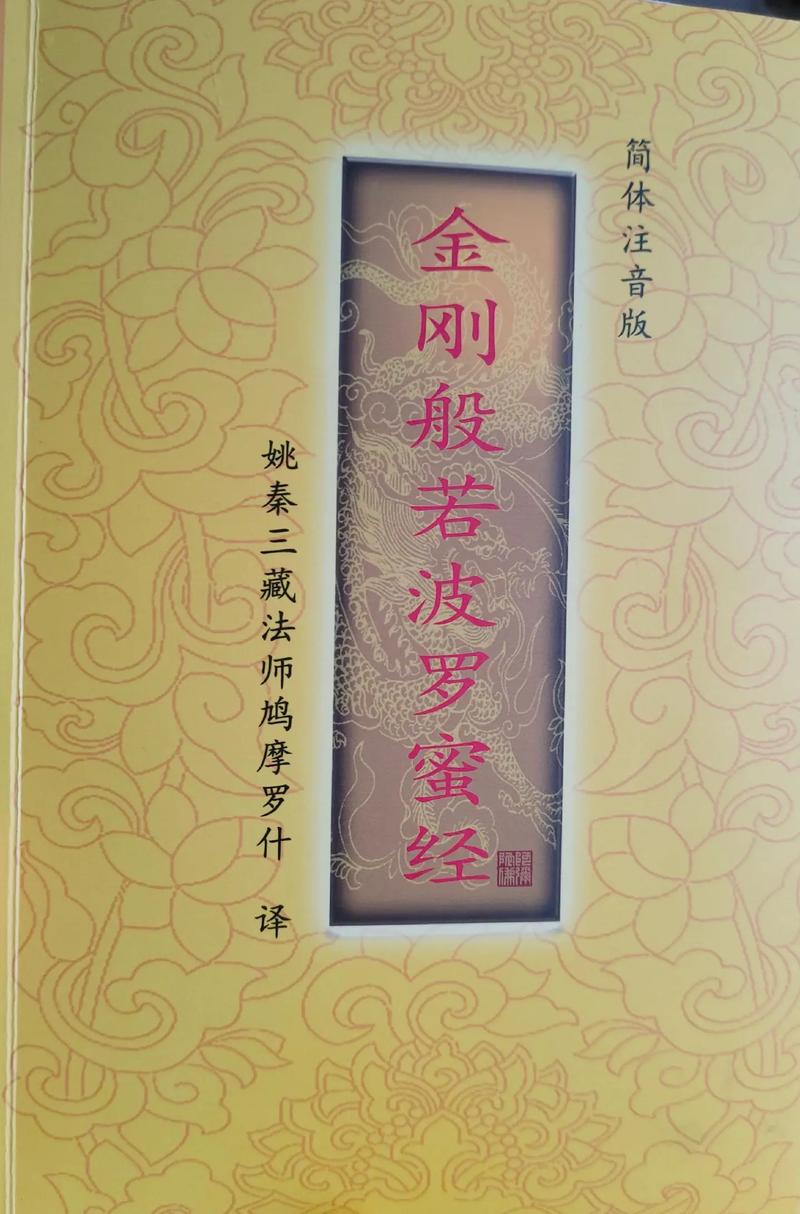 简体注音版
金刚般若波罗蜜经
姚秦三藏法师鸠摩罗什 译